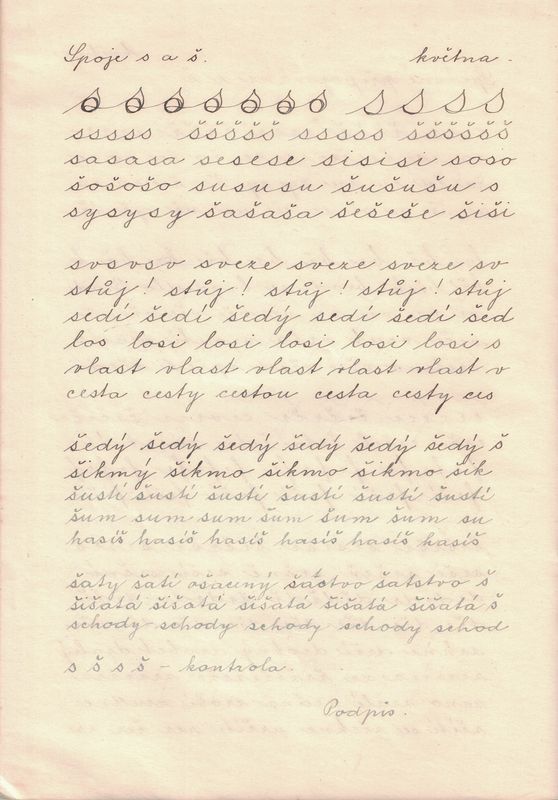 Spoje s a š. května.
s s s s s s s s s s
sssss ššššš sssss šššššš
sasasa sesese sisisi soso
šošošo sususu šušušu s
sysysy šašaša šešeše šiši
svsvsv sveze sveze sveze sv
stůj! stůj! stůj! stůj! stůj
sedí šedí šedý sedí šedí šed
los losi losi losi losi losi s
vlast vlast vlast vlast vlast v
cesta cesty cestou cesta cesty ces
šedý šedý šedý šedý šedý šedý š
šikmý šikmo šikmo šikmo šik
šustí šustí šustí šustí šustí šustí
šum sum sum šum šum šum su
hasíš hasíš hasíš hasíš hasíš hasíš
šaty šatí ošacený šatstvo šatstvo š
šišatá šišatá šišatá šišatá šišatá š
schody schody schody schody schod
s š s š - kontrola.
Podpis.